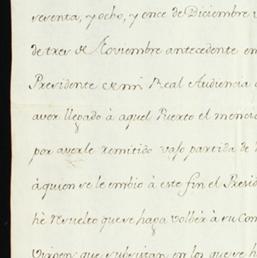 seventa, y ocho, y once de Diciembre
de trez de Noviembre antecedente en
Presidente de mi Real Audiencia
aver llegado à aquel Puerto el menci
por averle remitido vaso partida de
à quien se le embio à este fin el Presid
hè resuelto que se haga volbèr à su Com
que en los que se h